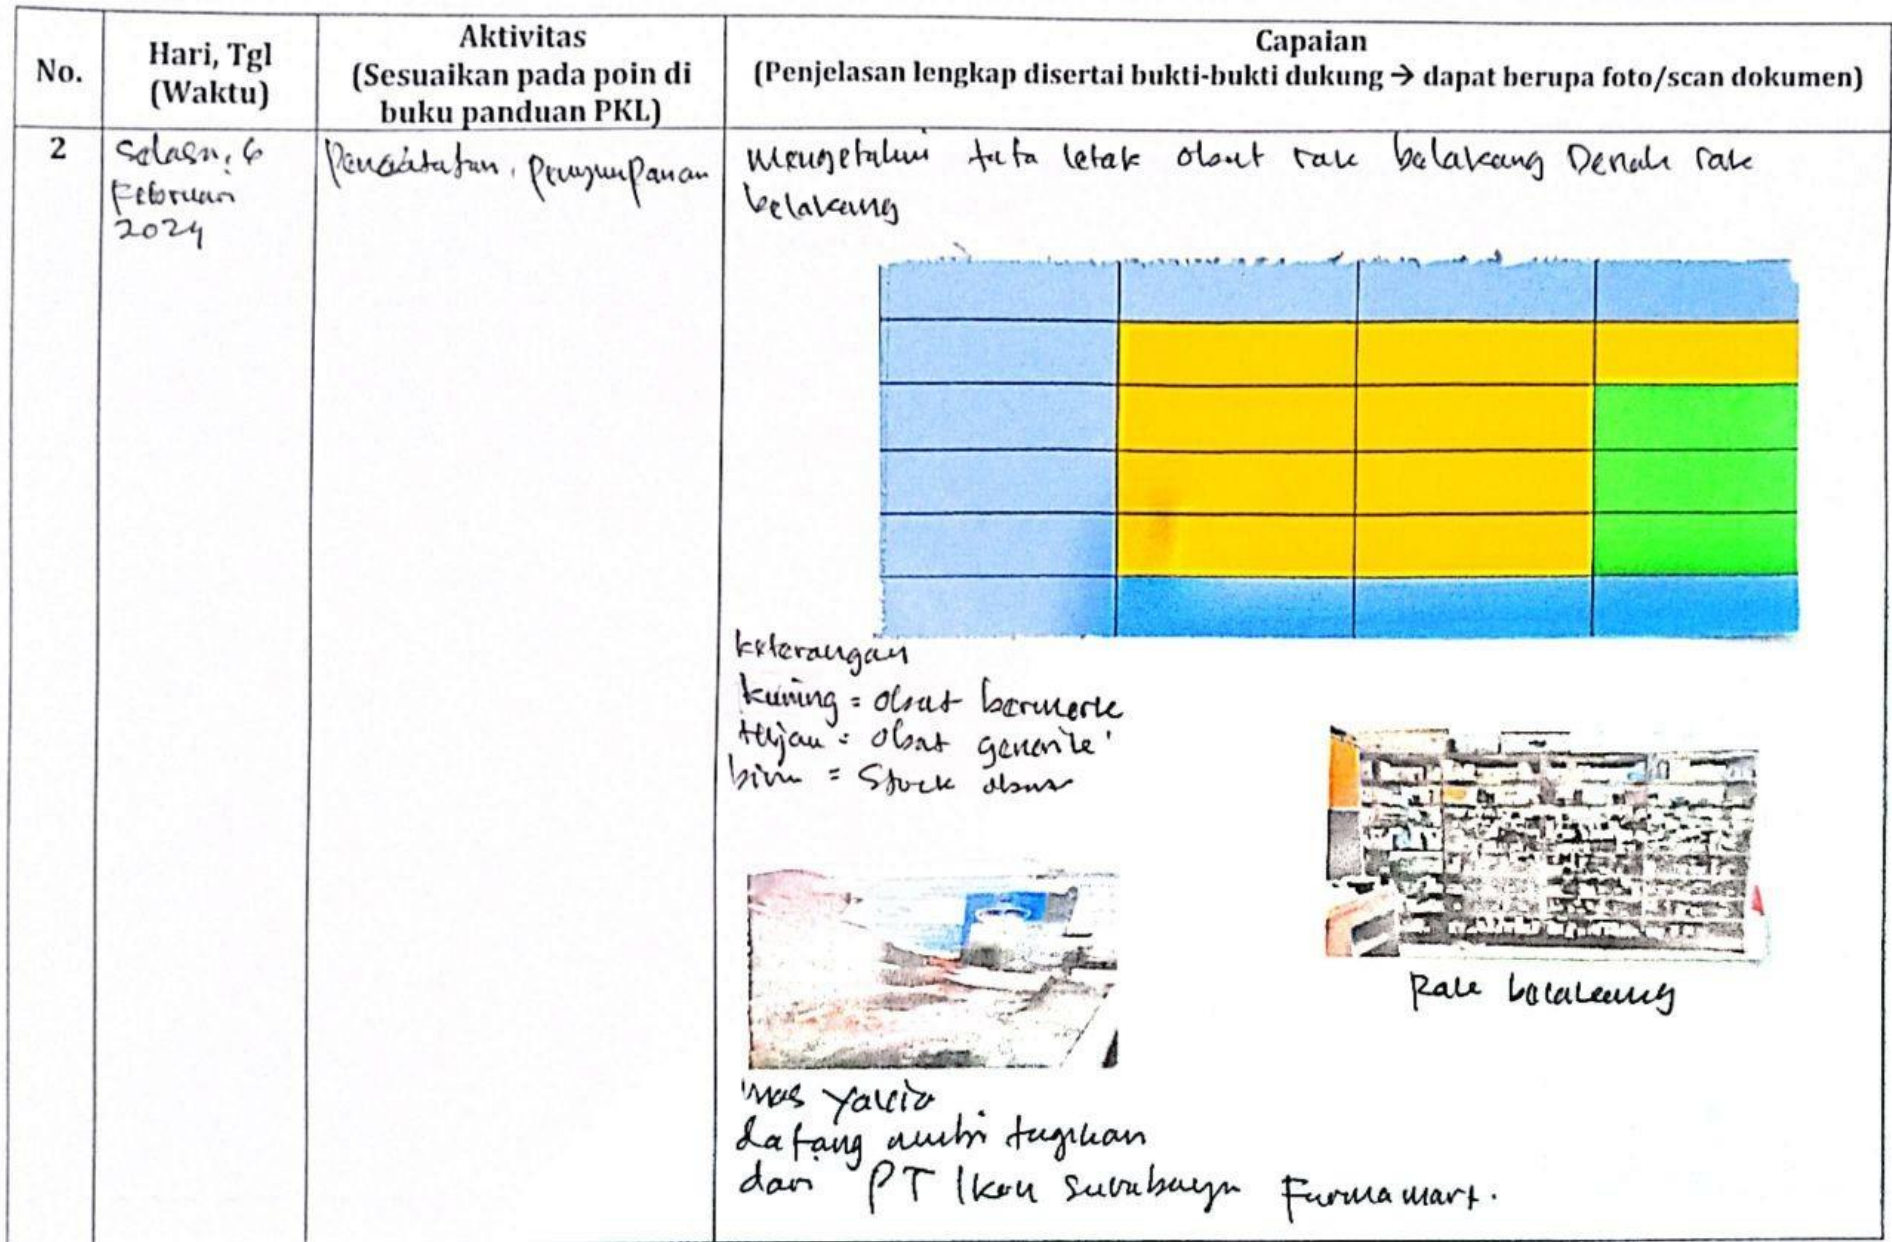 No.
Hari, Tgl
(Waktu)
Aktivitas
(Sesuaikan pada poin di
buku panduan PKL)
Capaian
(Penjelasan lengkap disertai bukti-bukti dukung → dapat berupa foto/scan dokumen)
2
Selasa, 6
Februari
2024
Pencatatan, penyimpanan
Mengetahui tata letak obat rak belakang Denah rak
belakang
keterangan
kuning = obat bermerk
Hijau = obat generik
biru = Stock obat
Rak belakang
Mas
datang ambil tagihan
dari PT Ikon Surabaya Farmamart.